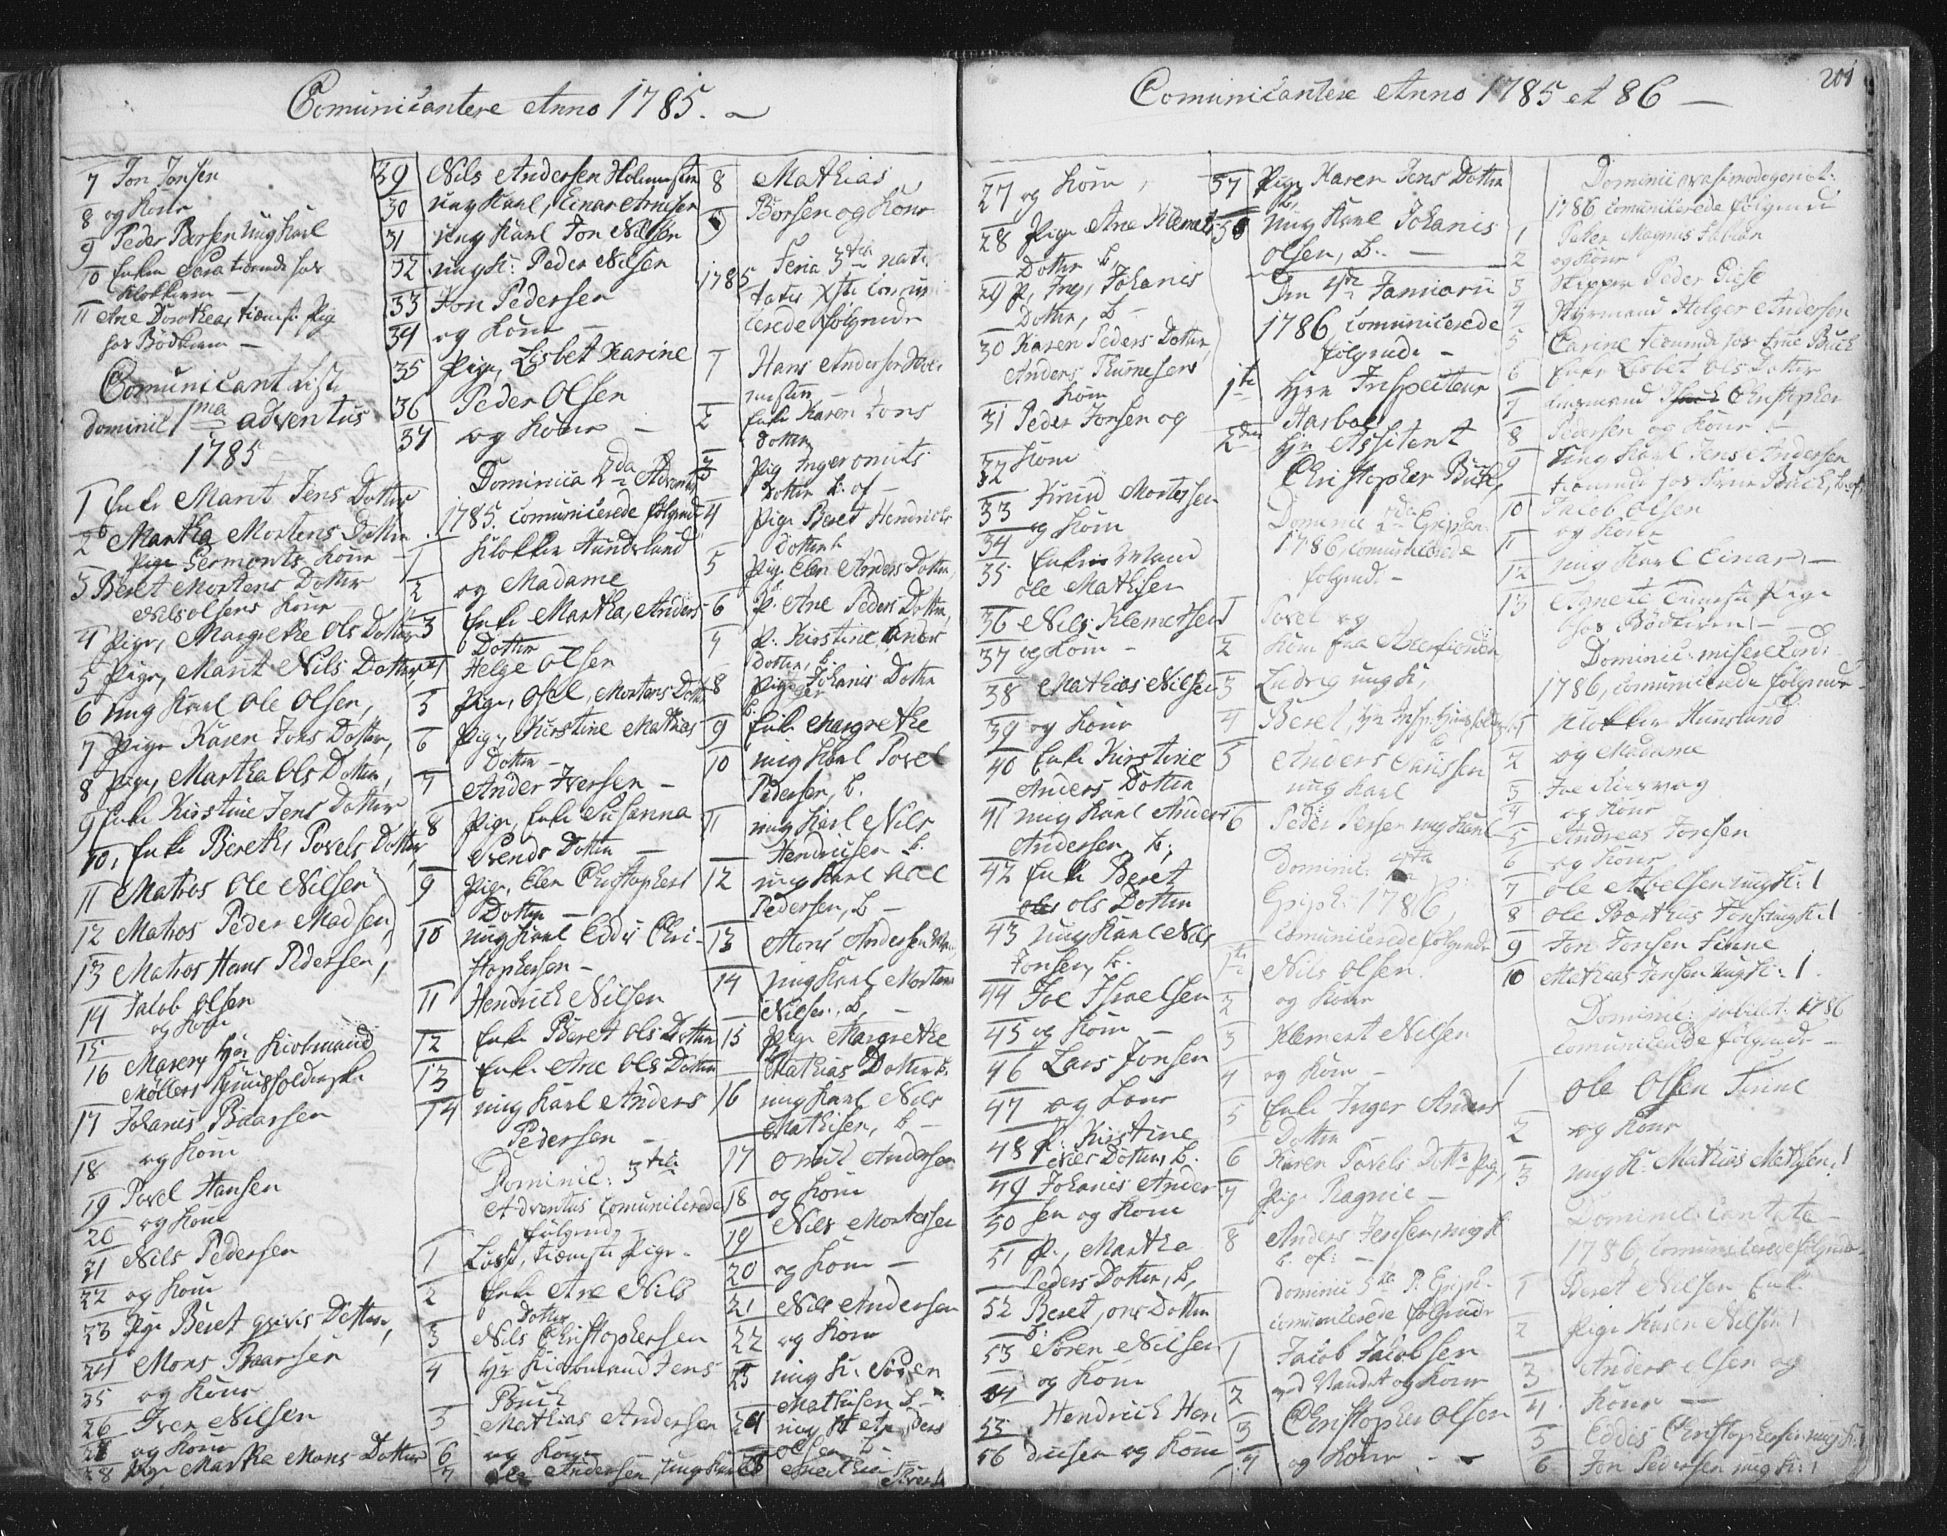 Comunicantere Anno 1785.
7 Jon Jonsen
8 og Kone
9 Peder Borsen ung Karl
10 Enke Sara tienende hos
Klokkeren
11 Ane Dorothea, tienest: Pig
hos Bødkeren
Comunicant Liste
Dominic 1ma adventus
1785
1 Enke Marit Jens Dotter
2 Martha Mortens Dotter
Kone
3 Beret Mortens Dotter
Nils Olsens Kone
4 Pige, Margrethe Ols Dotter
5 Pige, Marit Nils Dotter
6 ung Karl Ole Olsen,
7 Pige Karen Jons Dotter,
8 Pige, Martha Ols Dotter,
9 Enke Kirstine Jens Dotter
10, Enke Bereth, Povels Dotter,
11 Matros Ole Nilsen
12 Matros Peder Madsen,
13 Matros Hans Pedersen,
14 Jacob Olsen
15 og Kone
16 Maren, Hr: Kiobmand
Møllers Huusholderske
17 Johanis Baarsen
18 og Kone
19 Povel Hansen
20 og Kone
21 Nils Pedersen
22 og Kone
23 Pige Beret Dotter,
24 Mons Baarsen
25 og Kone
26 Iver Nilsen
27 og Kone
28 Pige Martha Mons Dotter
29 Nils Andersen
30 ung Karl, Einar Arnesen
31 ung Karl Jon Nilsen
32 ung K: Peder Nilsen
33 Jon Pedersen
34 og Kone
35 Pige, Lisbet Karine
36 Peder Olsen
37 og Kone
Dominica 2da Adventus
1785. comunicerede følgende
1 Klokker Hundslund
2 og Madame
3 Enke Martha, Anders
Dotter
4 Helge Olsen
5 Pige, Osel, Mortens Dotter
6 Pige, Kirstine Mathias
Dotter
7 Ander Iversen
8 Pige, Enke Susanna
Svends Dotter
9 Pige, Elen Christophers
Dotter
10 ung Karl Eddis Chri-
stophersen
11 Hendrich Nilsen
12 Enke Beret Ols Dotter
13 Enke Ane Ols Dotter
14 ung Karl Anders
Pedersen
Dominic: 3tie
Adventus Comunicerede
følgende
1 tienest Pige
2 Enke Ane Nils
Dotter
3 Nils Christophersen
4 Hr Kiøbmand Jens
Buch
5 Mathias Andersen
6 og Kone
7 Ole Andersen ung Karl
8 Mathias
9 Borsen og Kone
1785 Feria 3tia nati-
tatis Xsti comuni
cerede følgende
1 Hans Andersen
2 Enke Karen Jons
Dotter
3 Pig Inger
Dotter b. of
4 Pige Beret Hendrichs
Dotter
5 Pige Elen Anders Dotter
6 P. Ane Peders Dotter
7 P. Kirstine Anders
Dotter, b.
8 Pige Johanis Dotter
9 Enke Margrethe
10 ung Karl Povel
Pedersen, b.
11 ung Karl Nils
Hendricsen b.
12 ung Karl Ole
Pedersen, b
13 Mons Andersen
14 ung Karl Morten
Nilsen, b,
15 Pige Margrethe
Mathias Dotter b.
16 ung Karl Nils
Mathisen, b
17 Andersen
18 og Kone
19 Nils Mortensen
20 og Kone
21 Nils Andersen
22 og Kone
23 ung K: Søren
Mathisen b
24 ung K Anders
Olsen b
Comunicantere Anno 1785 et 86
201
27 og Kone,
28 Pige Ane Klemets
Dotter b,
29 P, Ing, Johanis
Dotter, b
30 Karen Peders Dotter,
Anders Thuresens
Kone
31 Peder Jonsen og
32 Kone
33 Knud Mortensen
34 og Kone
35 Enke Mand
Ole Mathisen
36 Nils Klemetsen
37 og Kone
38 Mathias Nilsen
39 og Kone
40 Enke Kirstine
Anders Dotter
41 ung Karl Anders
Andersen b,
42 Enke Beret
Ols Dotter
43 ung Karl Nils
Jonsen, b.
44 Joe Israelsen
45 og Kone
46 Lars Jonsen
47 og Kone
48 P. Kirstine
Dotter, b.
49 Johanes Ander
50 sen og Kone
51 P., Martha
Peders Dotter, b,
52 Beret, Dotter
53 Søren Nilsen
54 og Kone
55 Hendrich Hen
56 dricsen og Kone
57 Pige Karen Jens Dotter
58 ung Karl Johanis
Olsen, b.
Den 1te Januarii
1786, comunicerede
følgende
1te Hrr Inspecteur
Aarboe
2den Hr. Assistent
Christopher Buch,
Dominic 2da Epiphan:
1786, comunicerede
følgende
1 Povel og
2 Kone fra
3 Ludvig ung K,
4 Beret,
5 Anders
ung Karl
6 Peder Jensen ung Karl
Dominic: 4ta
Epiph: 1786
comunicerede følgende
1te Nils Olsen
2 og Kone
3 Klement Nilsen
4 og Kone
5 Enke Inger Anders
Dotter
6 Karen Povels Dotter Pig,
7 Pige Ragnie
8 Anders Jensen, ung K
b. of:
Dominic 5te P. Epiph.
comunicerede følgende
1 Jacob Jacobsen
2 ved Vandet og Kone
3 Christopher Olsen
4 og Kone
Dominic qvasimodogenit:
1786 comunicerede følgende
1 Peter Magnus Fabian
2 og Kone
3 Skipper Peder
4 Styrmand Holger Andersen
5 Carine tienende hos Buch
6 Enke Lisbet Ols Dotter
7 Christopher
8 Pedersen og Kone
9 ung Karl Jens Andersen
tienende hos Buch, b. of,
10 Jacob Olsen
11 og Kone
12 ung Karl Einar
13 Agnete tienest Pige
hos Bødkeren
Dominic: misericord:
1786, comunicerede følgende
1 Klokker Hunslund
2 og Madame
3 Joe
4 og Kone
5 Andreas Jonsen
6 og Kone
7 Ole Abelsen ung K: 1
8 Ole Bærthus ung K: 1
9 Jon Jonsen Finne
10 Mathias Jensen ung K: 1
Dominic: jubilat: 1786
comunicerede følgende
1 Ole Olsen Finne
2 og Kone
3 ung K: Mathias Mathisen, 1
Dominic: Cantate
1786, Comunicerede følgende
1 Beret Nilsen Enke
2 Pige Karen Nilsen 1
3 Anders Olsen og
4 Kone
5 Eddis Christophersen ung K: 1
6 Jon Pedersen ung K: 1